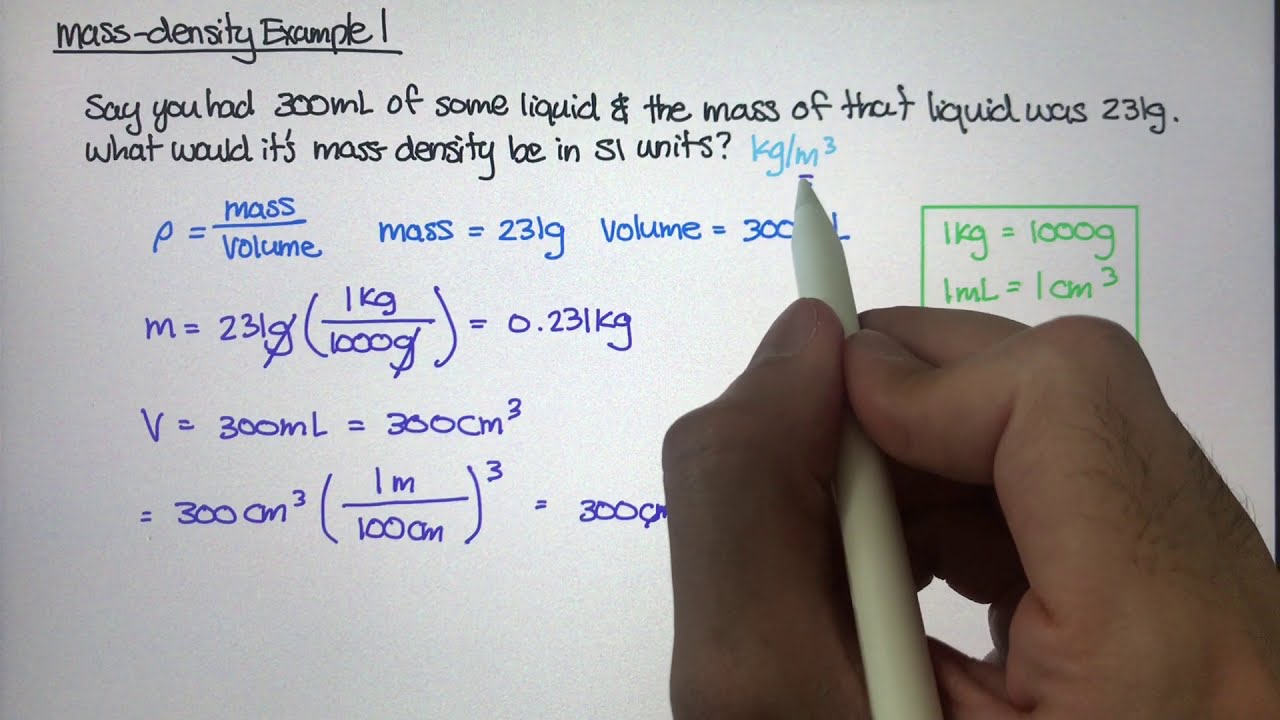 mass-density Example 1
Say you had 300mL of some liquid & the mass of that liquid was 231g.
What would it's mass-density be in SI units? kg/m³
ρ = mass/volume mass = 231g volume = 300 L
1kg = 1000g
1mL = 1cm³
m = 231g (1kg/1000g) = 0.231kg
V = 300mL = 300cm³
= 300cm³ (1m/100cm)³ = 300cm